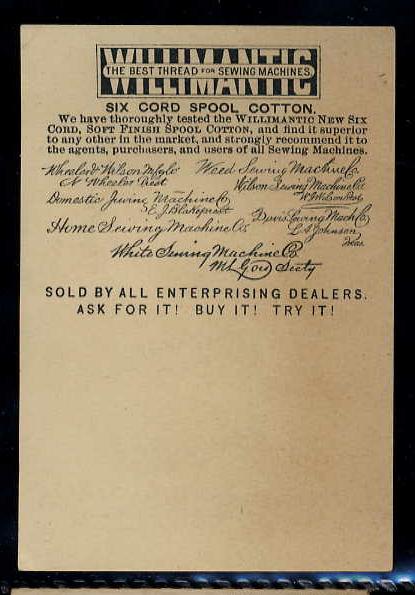 WILLIMANTIC
THE BEST THREAD FOR SEWING MACHINES
SIX CORD SPOOL COTTON.
We have thoroughly tested the WILLIMANTIC NEW SIX
CORD, SOFT FINISH SPOOL COTTON, and find it superior
to any other in the market, and strongly recommend it to
the agents, purchasers, and users of all Sewing Machines.
Wheeler & Wilson Mfg Co
N Wheeler Prest
Weed Sewing Machine Co.
Wilson Sewing Machine Co.
W.G. Wilson Prest
Domestic Sewing Machine Co
Davis Sewing Mach Co
L A Johnson
Treas
Home Sewing Machine Co.
White Sewing Machine Co.
Secty
SOLD BY ALL ENTERPRISING DEALERS.
ASK FOR IT! BUY IT! TRY IT!